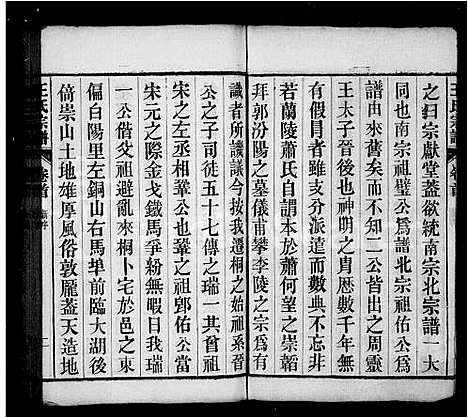 王氏宗譜
卷首
之归宗獻堂蓋欲統南宗北宗譜一大
同也南宗祖璧公爲譜北宗祖佑公爲
譜由來舊矣而不知二公皆出之周靈
王太子晉後也神明之胄歷數千年無
有假冒者無有二焉而數典不忘祖
若蘭陵蕭氏自謂本於蕭何望之崇韜
拜郭汾陽之墓儀甫攀李陵之宗有
識者所譏議今按我遷桐之始祖系晉
公之子司徒五十七傳之瑞一其酋祖
宋之左丞相鞏公之祖郢佑公當
宋元之際金戈鐵馬爭紛無暇日我
一公偕爻祖避亂來桐卜宅於邑之東
偏白陽里左銅山右馬埠前臨大湖後
倚崇山土地雄厚風俗敦厖蓋天造地
王氏宗譜
卷首
新序
一